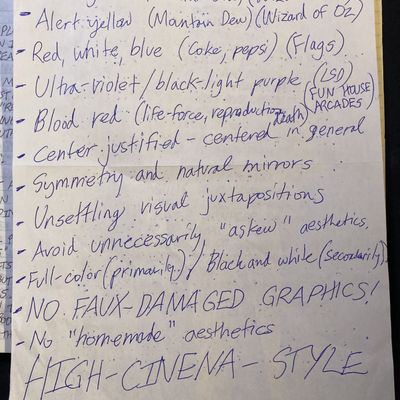 - Alert yellow (Mountain Dew) (Wizard of Oz)
- Red, white, blue (Coke, pepsi) (Flags)
- Ultra-violet/black-light purple (LSD)
(FUN HOUSE ARCADES)
- Blood red (life-force, reproduction, death)
- Center justified - centered in general
- Symmetry and natural mirrors
- Unsettling visual juxtapositions
- Avoid unnecessarily "askew" aesthetics.
- Full-color (primarily) / Black and white (secondarily)
- NO FAUX-DAMAGED GRAPHICS!
- No "homemade" aesthetics
HIGH-CINEMA-STYLE